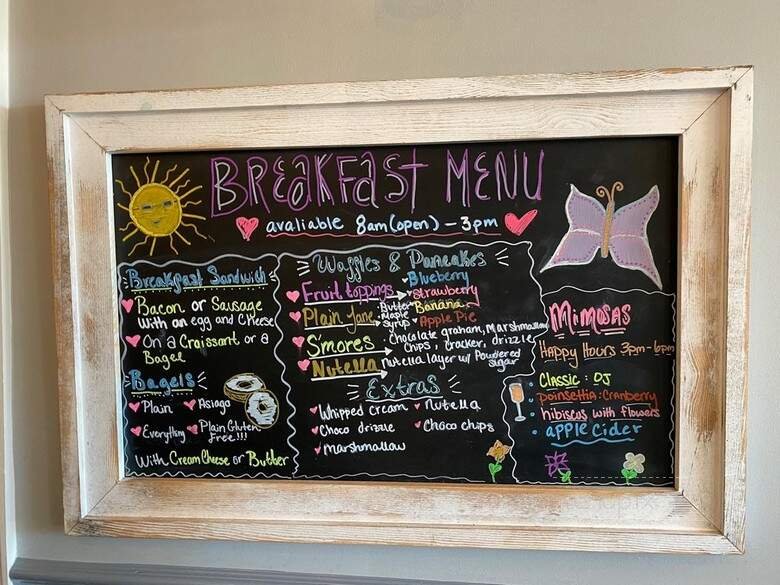 BREAKFAST MENU
avaliable 8am (open) - 3pm
Breakfast Sandwich
Bacon or Sausage
With an egg and Cheese
On a Croissant or a
Bagel
Bagels
Plain
Asiago
Everything
Plain Gluten
Free!!!
With Cream Cheese or Butter
Waffles & Pancakes
Fruit toppings
Blueberry
Strawberry
Banana
Apple Pie
Plain Jane
Butter
Maple
Syrup
S'mores
Chocolate graham, Marshmallow
Chips, cracker, drizzle
Nutella
nutella layer w/ Powdered
sugar
Extras
Whipped Cream
Nutella
Choco drizzle
Choco chips
Marshmallow
MIMOSAS
Happy Hours 3pm-6pm
Classic: OJ
Poinsettia: Cranberry
hibiscus with flowers
apple cider